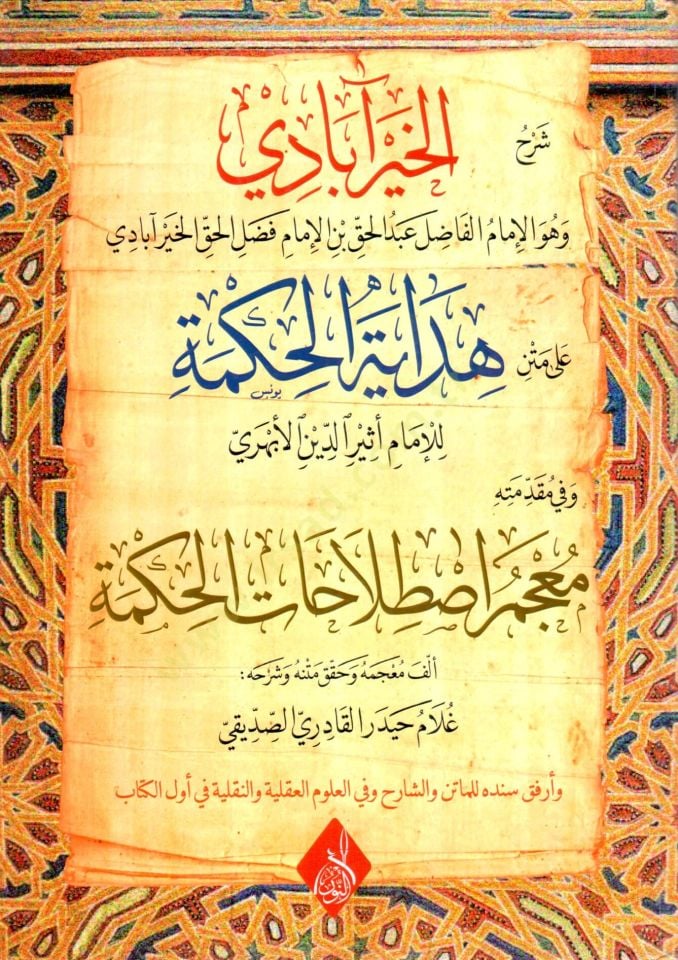 شَرْحُ الخَيْرآبَادِيْ
وَهُوَ الإِمَامُ الفَاضِل عَبْدُ الحَقِّ بْنِ الإِمَامِ فَضَلِ الحَقِّ الخَيْرَ آبَادِي
عَلَى مَتْنِ هِدَايَةِ الحِكْمَةِ
يونس
لِلإِمَامِ أَثِيْرِ الدِّيْنِ الأَبْهَرِيّ
وَفِي مُقَدِّمَتِهِ
مُعْجَمُ اصْطِلَاحَاتِ الحِكْمَةِ
أَلَّفَ مُعْجَمَهُ وَحَقَّقَ مَتْنَهُ وَشَرْحَه:
غُلَامُ حَيْدَر القَادِرِيّ الصِّدِّيْقِيّ
وأرفق سنده للماتن والشارح وفي العلوم العقلية والنقلية في أول الكتاب
النُّور